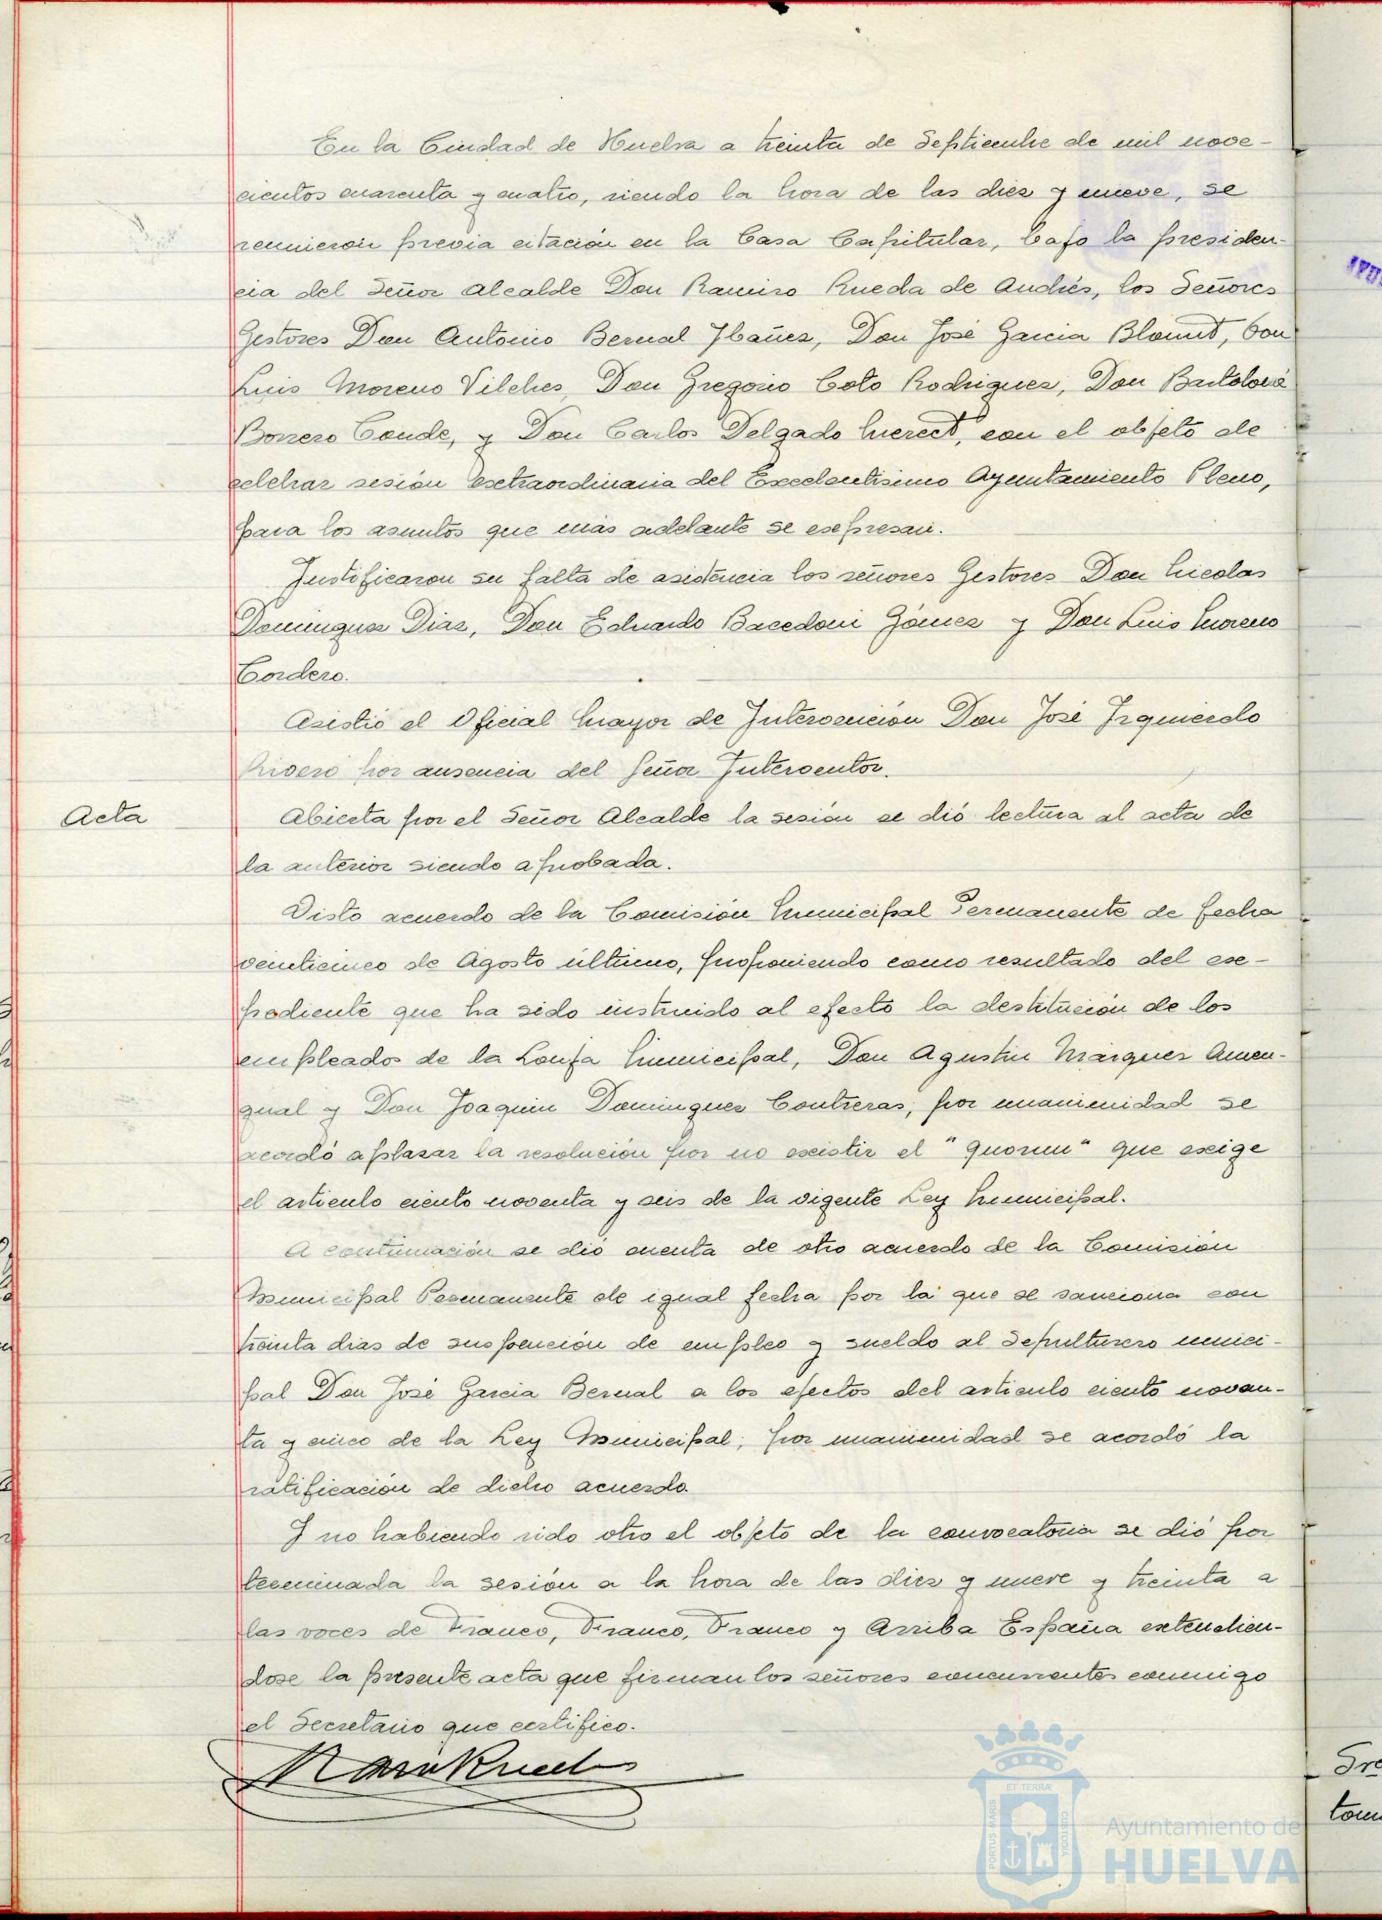 En la Ciudad de Huelva a treinta de Septiembre de mil nove-
cientos cuarenta y cuatro, siendo la hora de las diez y nueve, se
reunieron previa citación en la Casa Capitular, bajo la presiden-
cia del Señor Alcalde Don Ramiro Rueda de Andrés, los Señores
Gestores Don Antonio Bernal Ibañez, Don José Garcia Blound, Don
Luis Moreno Vilches, Don Gregorio Coto Rodriguez, Don Bartolomé
Borrero Conde, y Don Carlos Delgado Merect, con el objeto de
celebrar sesión extraordinaria del Excelentisimo Ayuntamiento Pleno,
para los asuntos que más adelante se expresan.
Justificaron su falta de asistencia los señores Gestores Don Nicolas
Dominguez Diaz, Don Eduardo Bacedoni Gómez y Don Luis Moreno
Cordero.
Asistió el Oficial Mayor de Intervención Don José Izquierdo
Rivero por ausencia del Señor Interventor.
Acta
Abierta por el Señor Alcalde la sesión se dió lectura al acta de
la anterior siendo aprobada.
Visto acuerdo de la Comisión Municipal Permanente de fecha
veinticinco de Agosto último, proponiendo como resultado del ex-
pediente que ha sido instruido al efecto la destitución de los
empleados de la Lonja Municipal, Don Agustin Marquez Amen-
gual y Don Joaquin Dominguez Contreras, por unanimidad se
acordó aplazar la resolución por no existir el "quorum" que exige
el articulo ciento noventa y seis de la vigente Ley Municipal.
A continuación se dió cuenta de otro acuerdo de la Comisión
Municipal Permanente de igual fecha por la que se sanciona con
treinta dias de suspención de empleo y sueldo al Sepulturero munici-
pal Don José Garcia Bernal a los efectos del articulo ciento noven-
ta y cinco de la Ley Municipal, por unanimidad se acordó la
ratificación de dicho acuerdo.
Y no habiendo sido otro el objeto de la convocatoria se dió por
terminada la sesión a la hora de las diez y nueve y treinta a
las voces de Franco, Franco, Franco y Arriba España extendien-
dose la presente acta que firman los señores concurrentes conmigo
el Secretario que certifico.
ET TERRÆ
PORTUS MARIS
CUSTODY
Ayuntamiento de
HUELVA